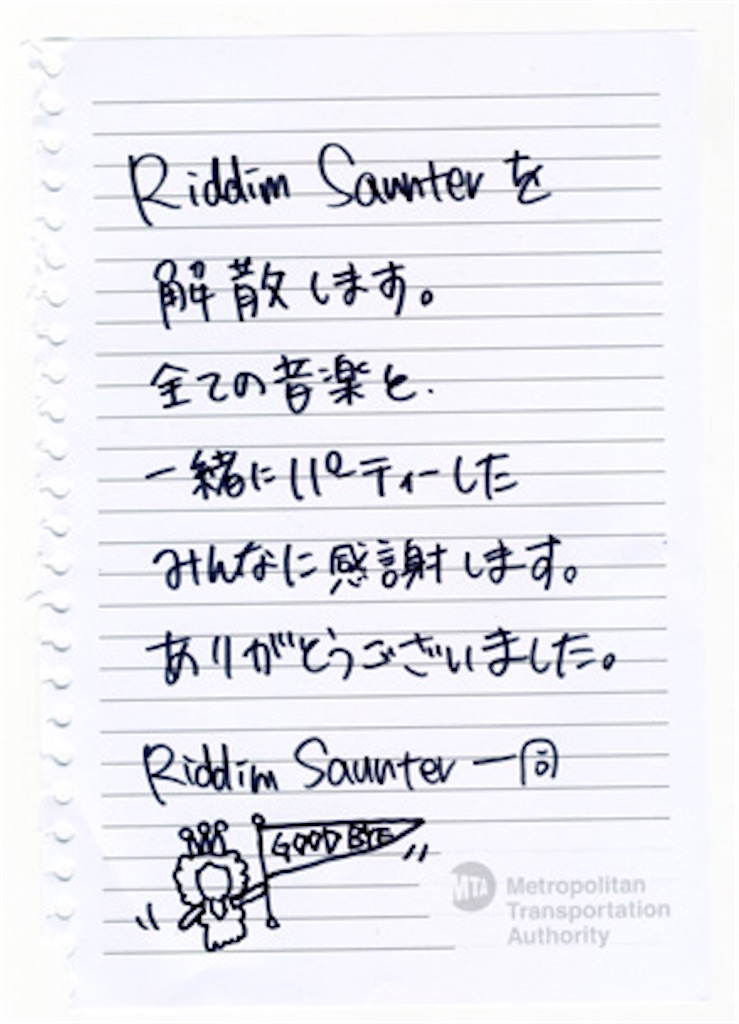 Riddim Saunterを
解散します。
全ての音楽と、
一緒にパーティーした
みんなに感謝します。
ありがとうございました。
Riddim Saunter 一同
GOOD BYE
MTA
Metropolitan
Transportation
Authority